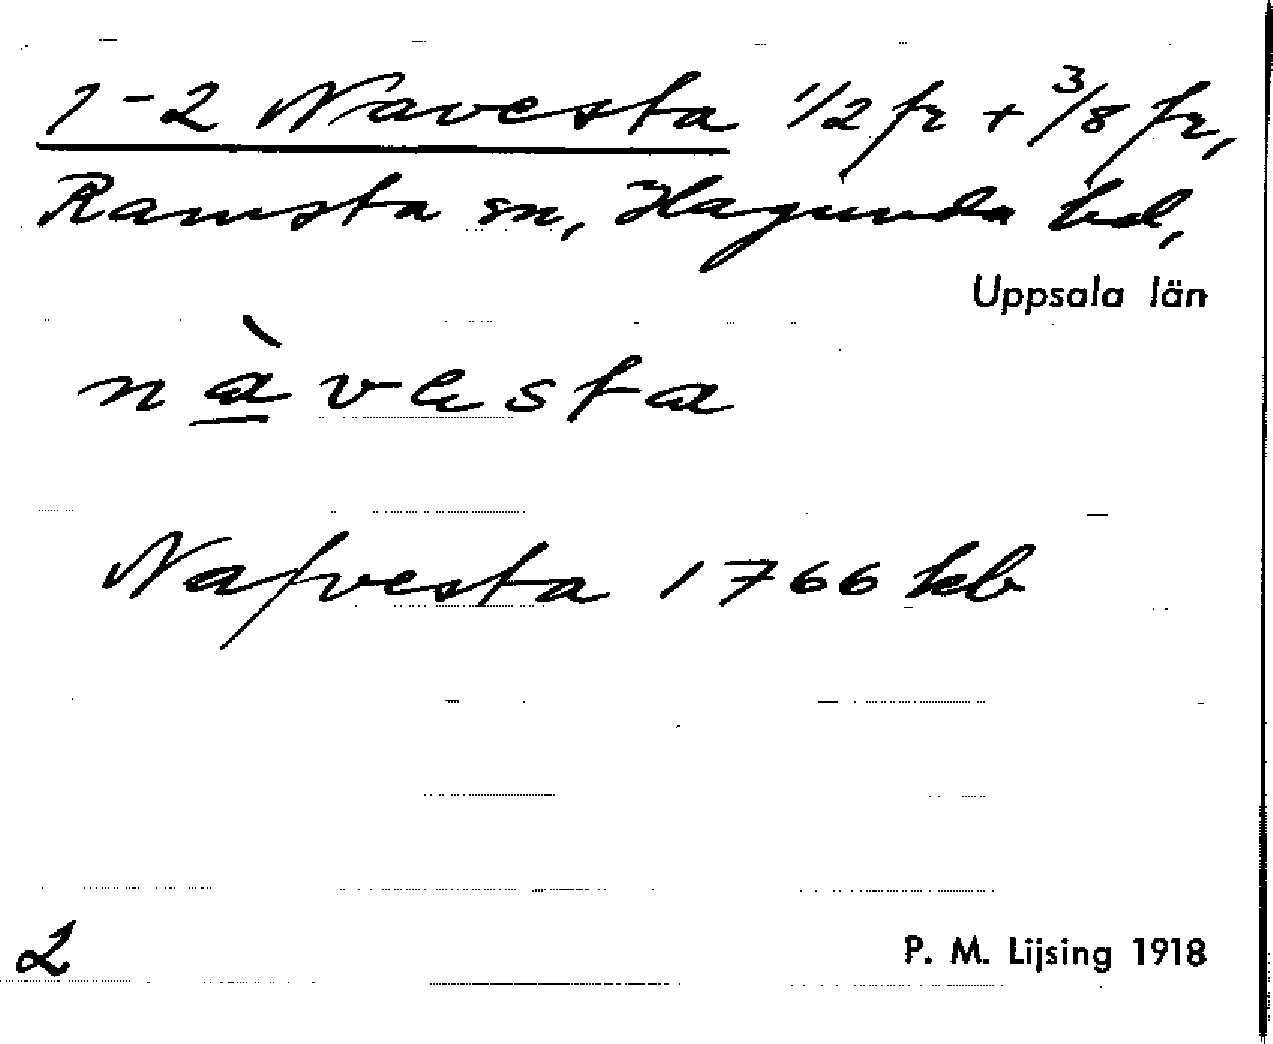 1-2 Navesta 1/2 fr + 3/8 fr,
Ramsta sn, Hagunda hd,
Uppsala län
nàvesta
Nafvesta 1766 kb
2
P. M. Lijsing 1918